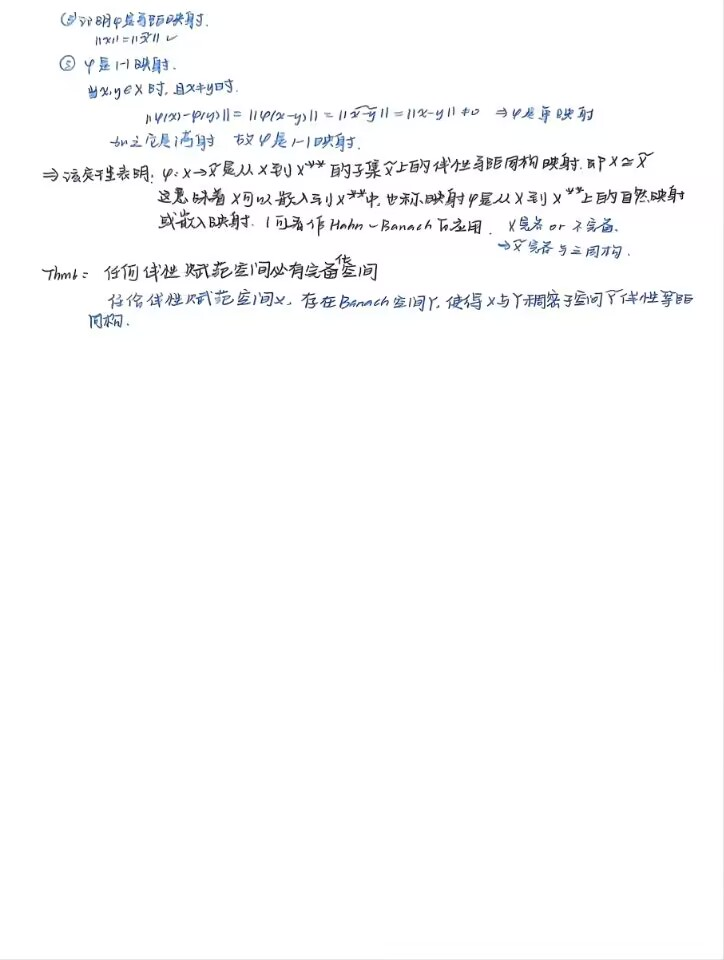 ② 证明φ是等距映射.
||x|| = ||x̃|| ✓
③ φ是1-1映射.
当x,y∈X时,且x≠y时.
||φ(x)-φ(y)|| = ||φ(x-y)|| = ||x̃-y|| = ||x-y|| ≠0 ⇒ φ是单映射
加之它是满射 故φ是1-1映射.
⇒ 该定理表明: φ: x→x̃ 是从X到X** 的子集X̃上的线性等距同构映射. 即 X ≅ X̃
这意味着 X可以嵌入到X**中, 也称映射φ是从X到X**上的自然映射
或嵌入映射. (可看作Hahn-Banach的应用. X完备 or 不完备.
→X̃完备与之同构.
Thm6: 任何线性赋范空间必有完备化空间
任给线性赋范空间X, 存在Banach空间Y, 使得X与Y稠密子空间Ỹ线性等距
同构.